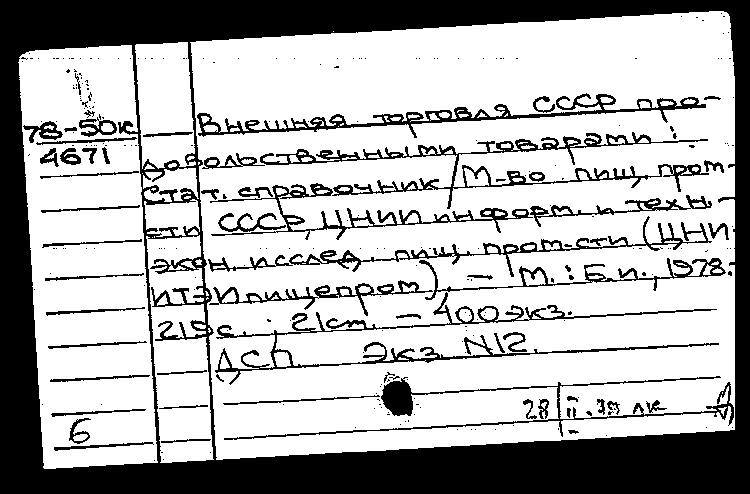 78-50к
4671
Внешняя торговля СССР про-
довольственными товарами :
Стат. справочник / М-во пищ. пром-
сти СССР, ЦНИИ информ. и техн.-
экон. исслед. пищ. пром-сти (ЦНИ-
ИТЭИпищепром). – М. : Б.и., 1978.-
219с. ; 21см. – 400экз.
ДСП. Экз. N12.
28/II
6